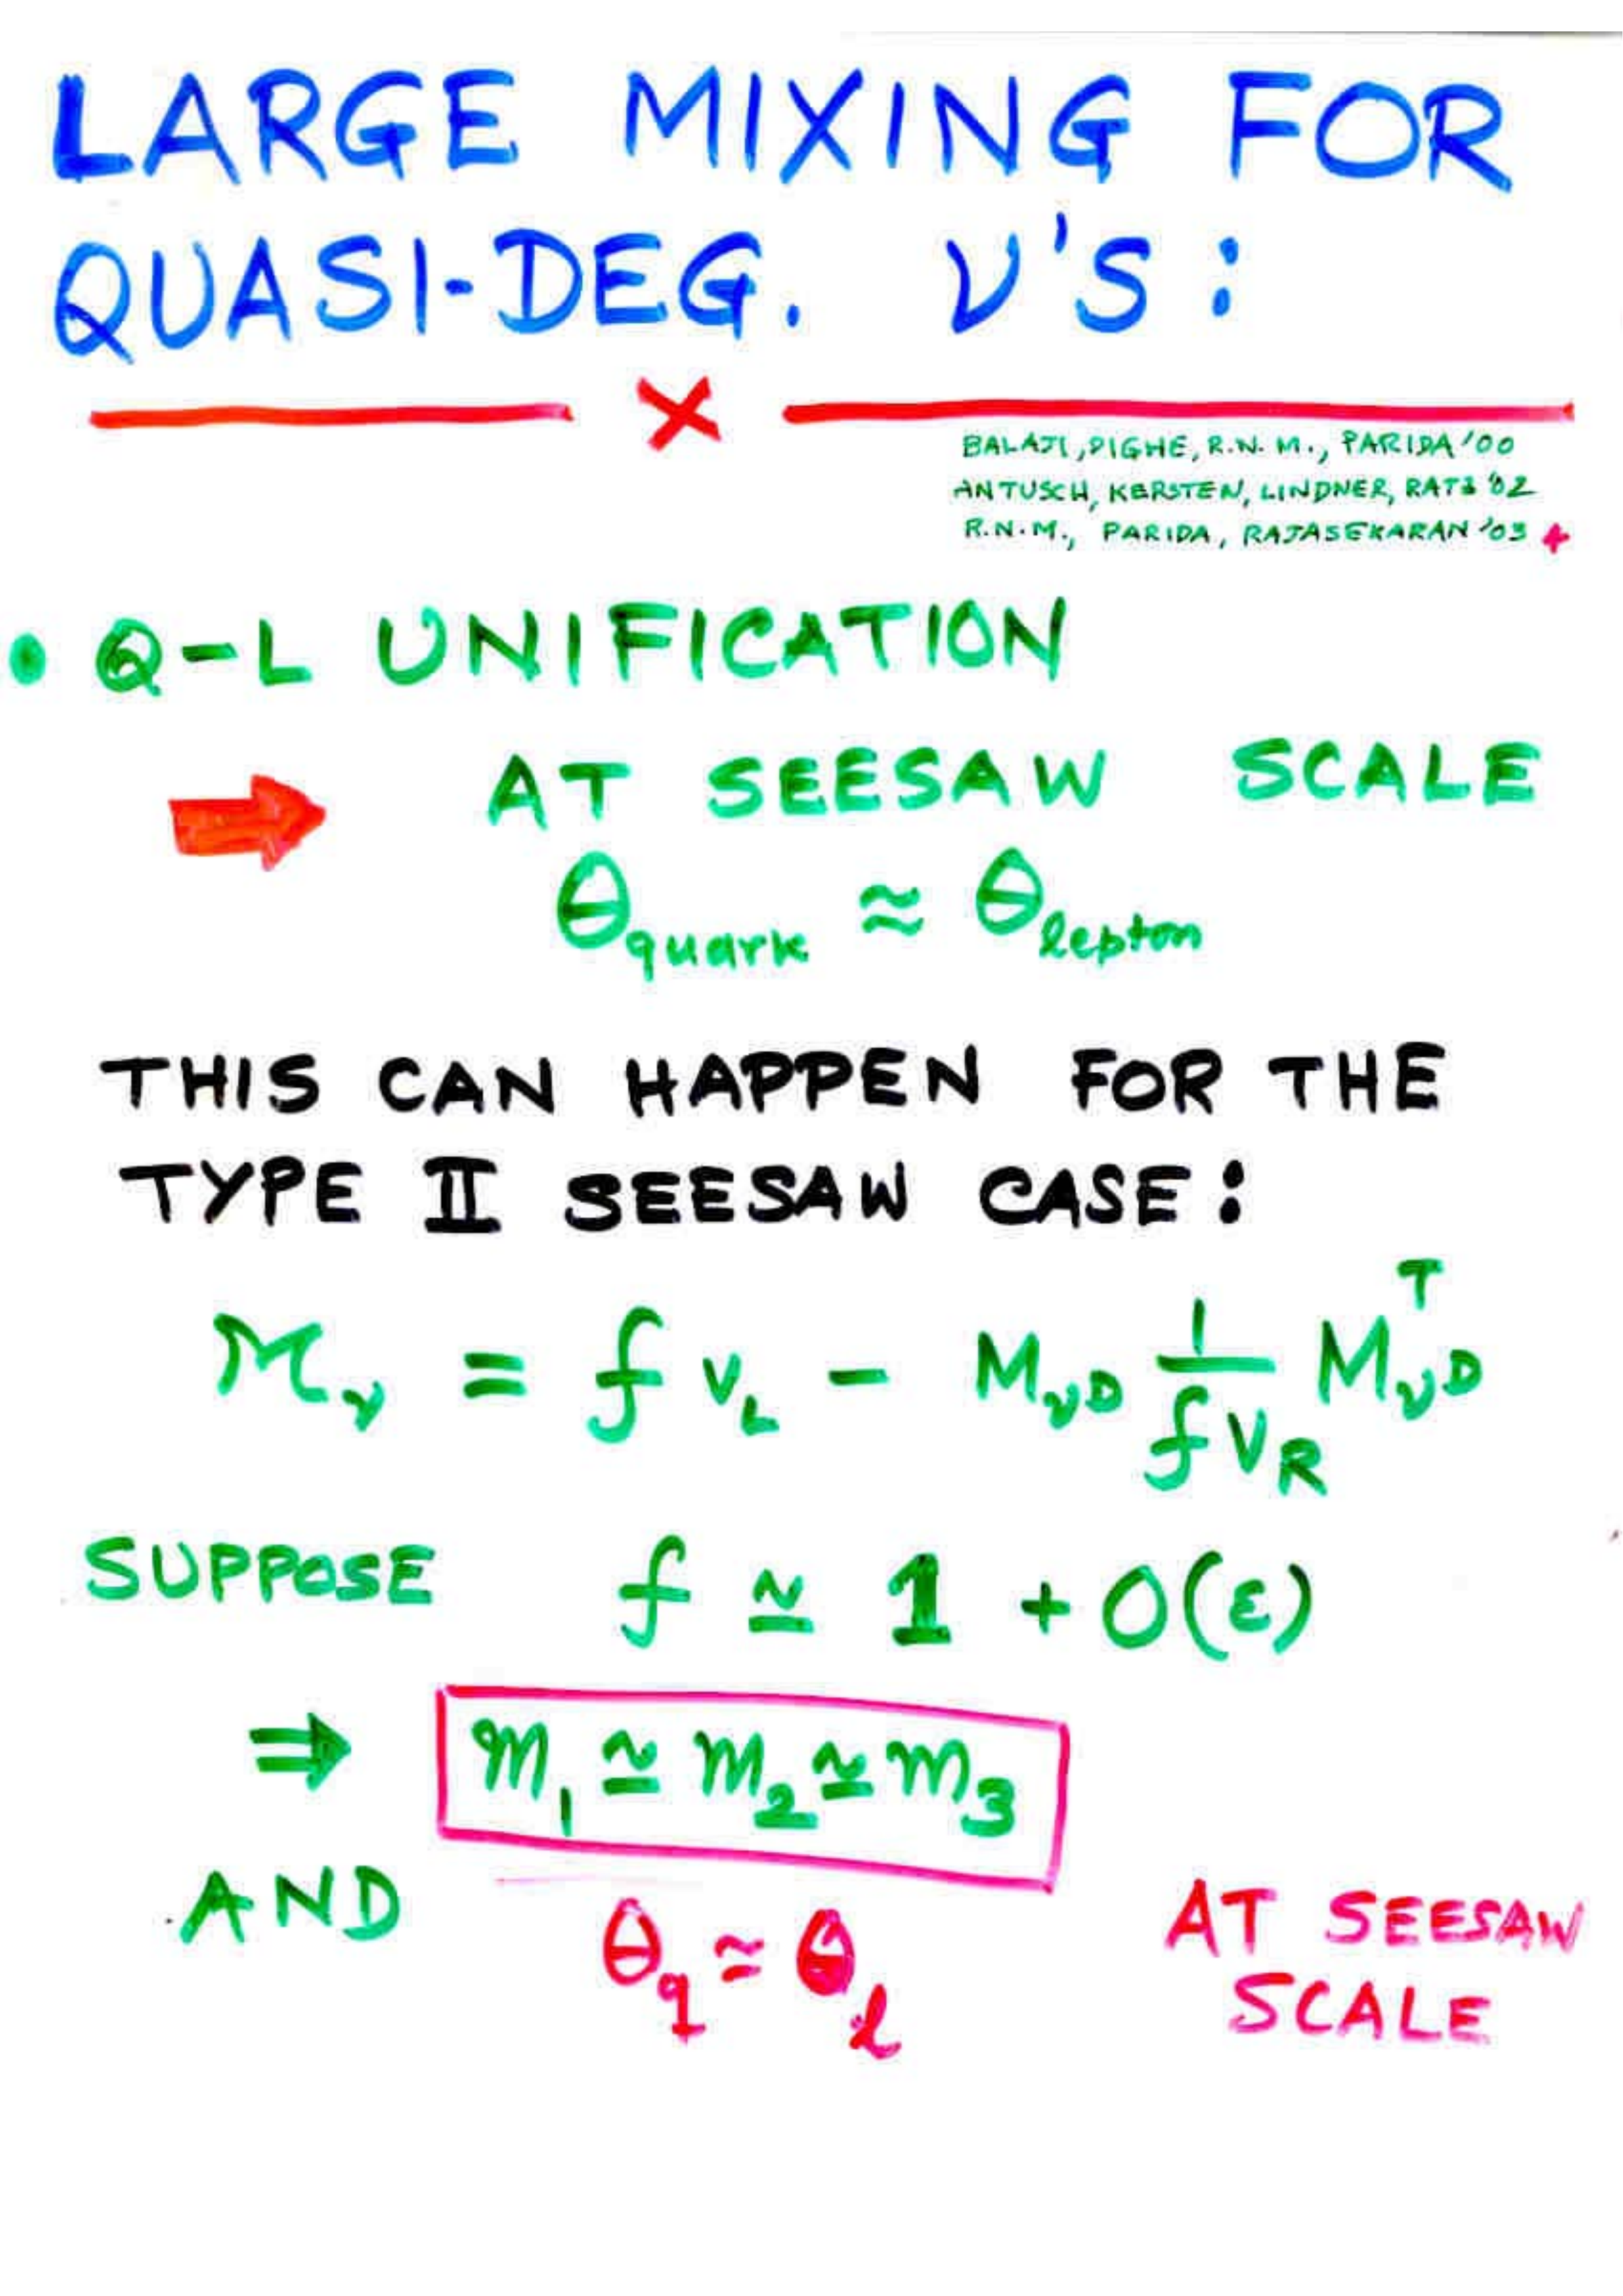 LARGE MIXING FOR
QUASI-DEG. ν'S:
BALAJI, DIGHE, R.N.M., PARIDA '00
ANTUSCH, KERSTEN, LINDNER, RATZ '02
R.N.M., PARIDA, RAJASEKARAN '03
• Q-L UNIFICATION
AT SEESAW SCALE
θ_quark ≈ θ_lepton
THIS CAN HAPPEN FOR THE
TYPE II SEESAW CASE:
M_ν = f v_L - M_νD 1/(f v_R) M_νD^T
SUPPOSE f ≃ 1 + O(ε)
⇒ m_1 ≃ m_2 ≃ m_3
AND θ_q ≃ θ_l AT SEESAW
SCALE